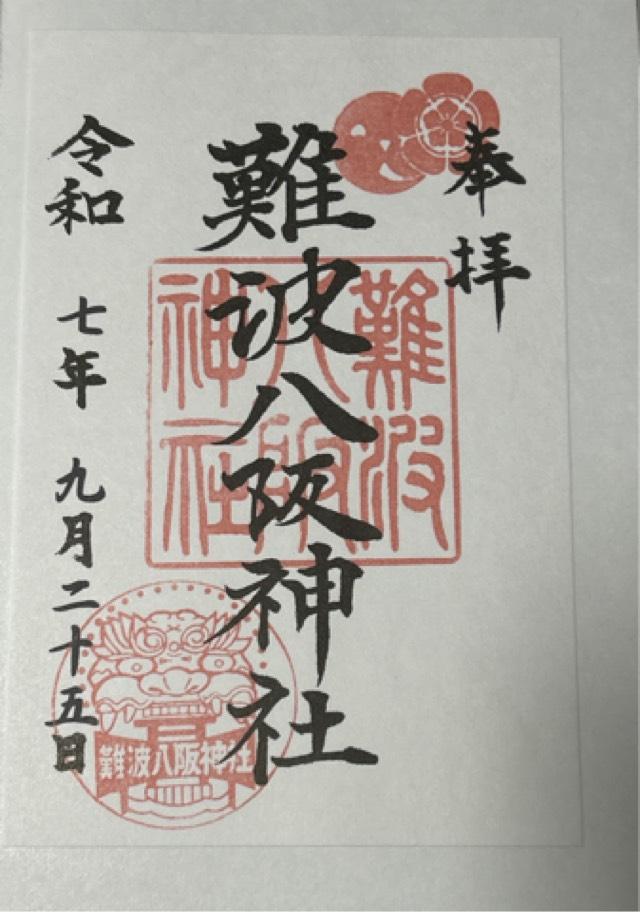 奉拝
難波八阪神社
難波八阪神社
令和 七年 九月二十五日
難波八阪神社